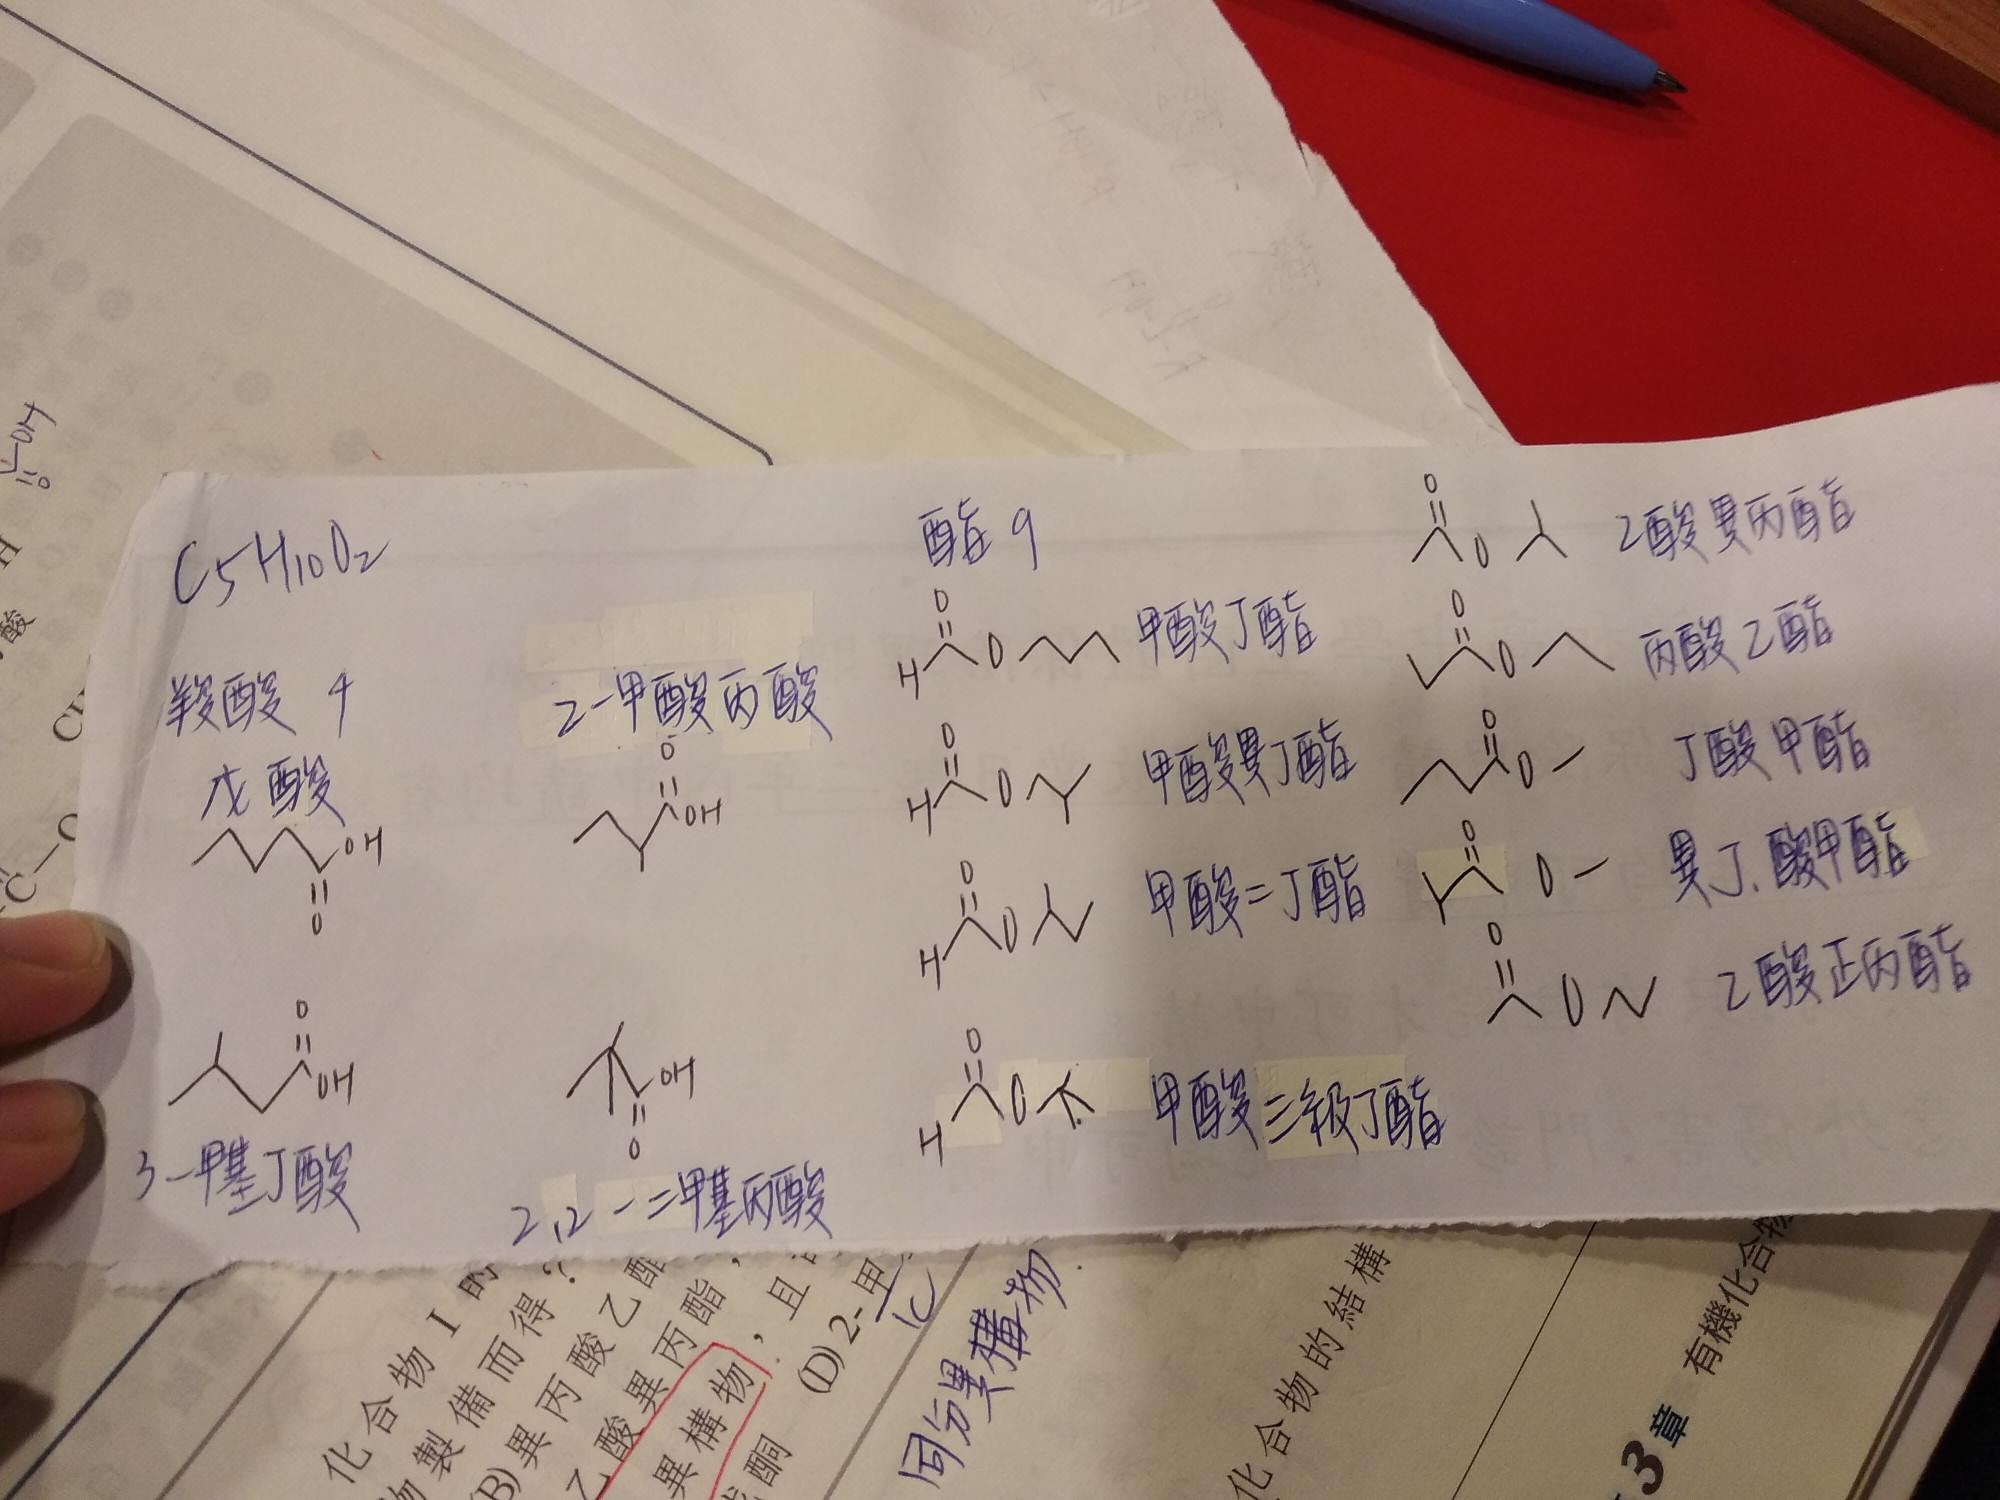 C5H10O2
羧酸 4
戊酸
OH
O
O
OH
3-甲基丁酸
2-甲酸丙酸
O
OH
OH
O
2,2-二甲基丙酸
酯 9
O
H O 甲酸丁酯
O
H O 甲酸異丁酯
O
H O 甲酸二丁酯
O
H O 甲酸三級丁酯
O
O 乙酸異丙酯
O
O 丙酸乙酯
O
O 丁酸甲酯
O
O 異丁酸甲酯
O
O 乙酸正丙酯
OH
O
H
酸
C
化合物 I 的
物製備而得?
(B)異丙酸乙酯
乙酸異丙酯,
異構物,且
酮 (D) 2-甲
1C
同分異構物
化合物的結構
3章 有機化合物